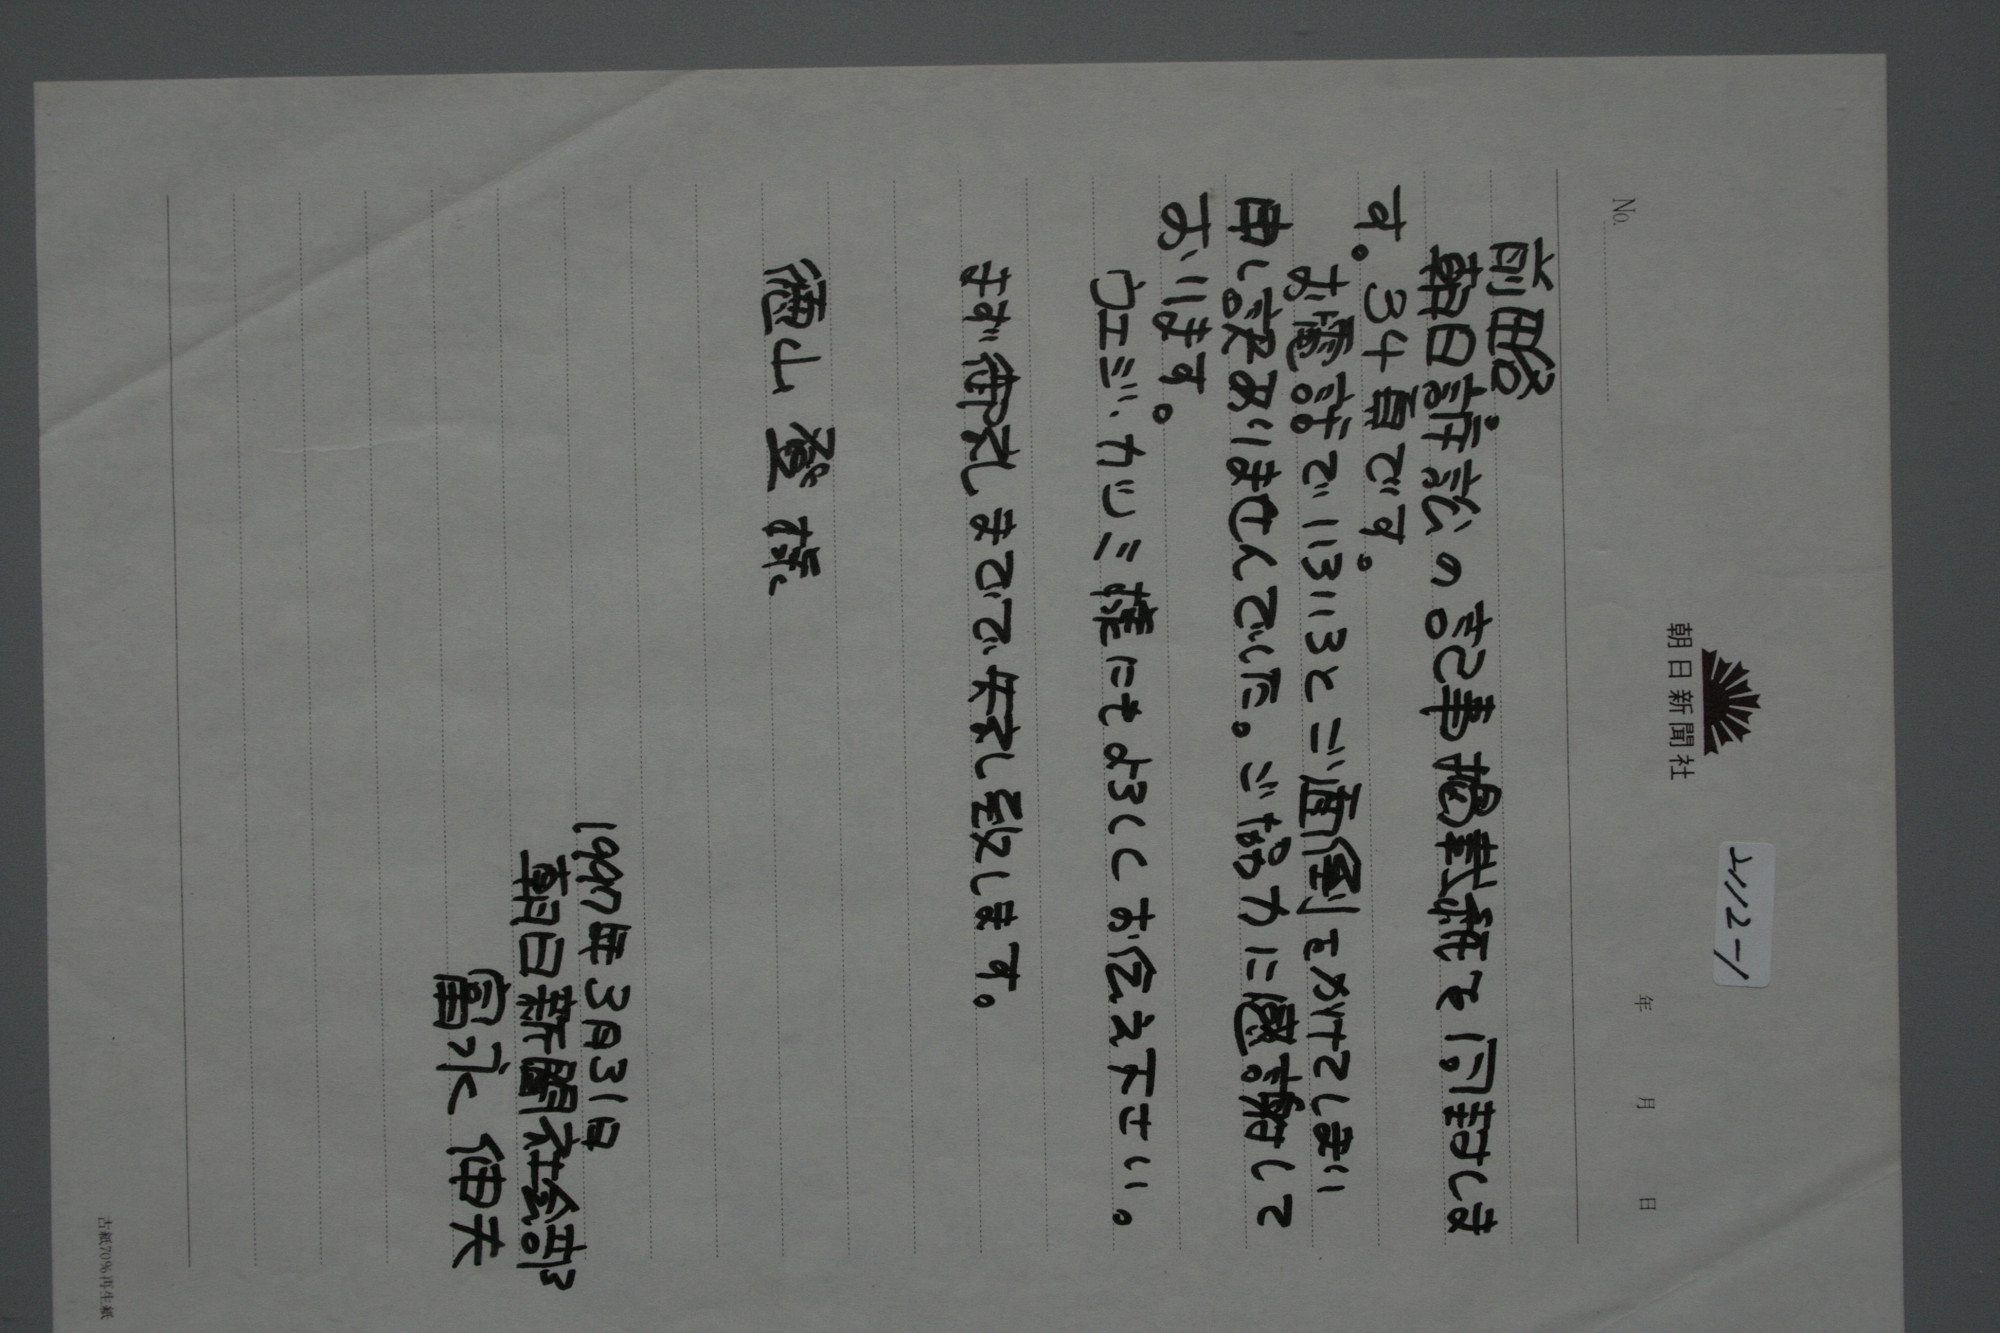 上112-1
朝日新聞社
No.
年 月 日
前略
朝日訴訟の記事掲載紙を同封しま
す。34頁です。
お電話でいろいろとご面倒をかけてしまい
申し訳ありませんでした。ご協力に感謝して
おります。
ウエジ、カツミ様にもよろしくお伝え下せい。
まずが御礼まてで失礼致します。
徳山 登 様
1997年3月31日
朝日新聞社会部
富永 伸夫
古紙70%再生紙